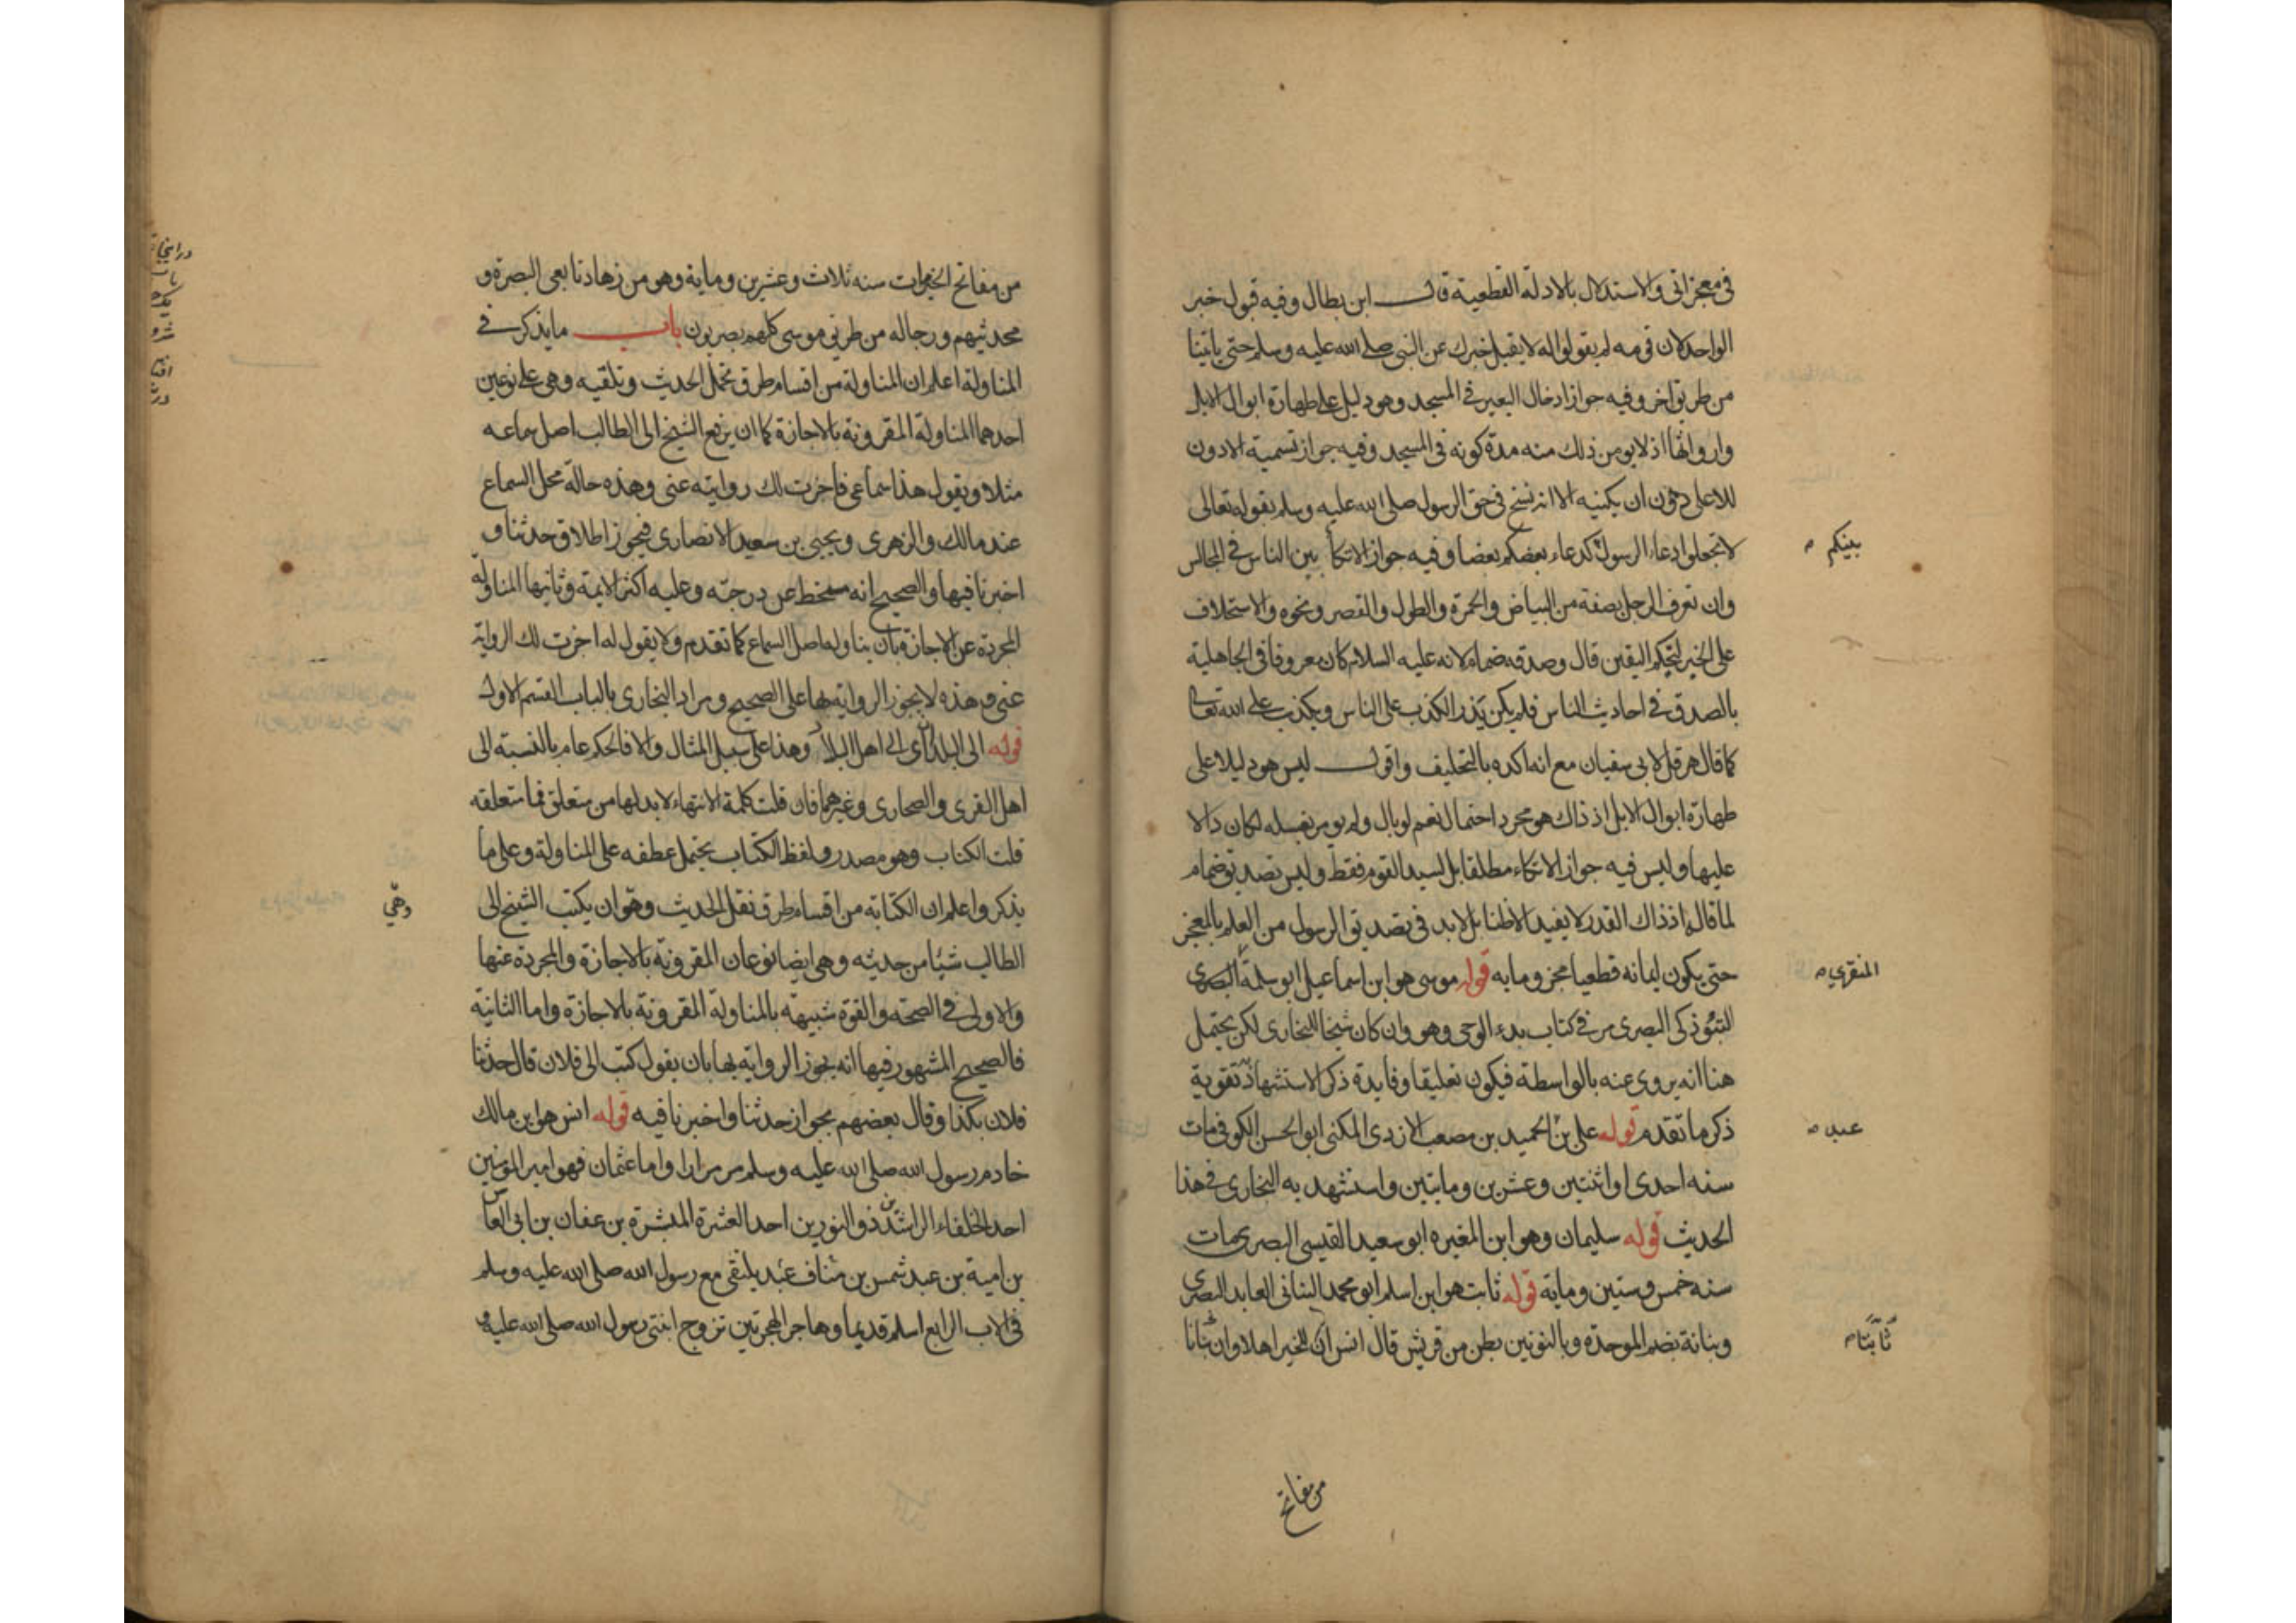 في معجزاتي والاستدلال بالادلة القطعية قال ابن بطال وفيه قبول خبر
الواحد لان قومه لم يقولوا له لا يقبل خبرك عن النبي صلى الله عليه وسلم حتى ياتينا
من طريق اخر وفيه جواز ادخال البعير في المسجد وهو دليل على طهارة ابوال الابل
وارواثها اذ لا يومن ذلك منه مدة كونه في المسجد وفيه جواز تسمية الادون
للاعلى دون ان يكنيه الا انه نسخ في حق الرسول صلى الله عليه وسلم بقوله تعالى
لا تجعلوا دعاء الرسول كدعاء بعضكم بعضا وفيه جواز الاتكا بين الناس في المجالس
بينكم
وان تعرف الرجل بصفة من البياض والحمرة والطول والقصر ونحوه والاستحلاف
على الخبر ليحكم اليقين قال وصدقه ضمام لانه عليه السلام كان معروفا في الجاهلية
بالصدق في احاديث الناس فلم يكن يذر الكذب على الناس ويكذب على الله تعالى
كما قال هرقل لابي سفيان مع انه اكده بالتحليف واقول ليس هو دليلا على
طهارة ابوال الابل اذ ذاك هو مجرد احتمال نعم لو بال ولم يومر بغسله لكان دالا
عليها وليس فيه جواز الاتكاء مطلقا بل لسيد القوم فقط وليس تصديق ضمام
لما قال اذ ذاك القدر لا يفيد الا ظنا بل لا بد في تصديق الرسول من العلم بالمعجز
حتى يكون ايمانه قطعيا مجزوما به قوله موسى هو ابن اسماعيل ابو سلمة البصري
المنقري
التبوذكي البصري مر في كتاب بدء الوحي وهو وان كان شيخا للبخاري لكن يحتمل
هنا انه يروي عنه بالواسطة فيكون تعليقا وفايدة ذكر الاستشهاد تقوية
ذكر ما تقدم قوله علي بن الحميد بن مصعب الازدي المكني ابو الحسن الكوفي مات
عبد
سنه احدى او اثنتين وعشرين ومايتين واستشهد به البخاري في هذا
الحديث قوله سليمان وهو ابن المغيره ابو سعيد القيسي البصري مات
سنه خمس وستين وماية قوله ثابت هو ابن اسلم ابو محمد البناني العابد البصري
وبنانة بضم الموحدة وبالنونين بطن من قريش قال انس ان للخير اهلا وان ثابتا
ثابتا
من مفاتح
من مفاتح الخيرات سنه ثلاث وعشرين وماية وهو من زهاد تابعي البصرة و
محدثيهم ورجاله من طريق موسى كلهم بصريون باب ما يذكر في
المناولة اعلم ان المناولة من اقسام طرق تحمل الحديث وتلقيه وهي على نوعين
احدهما المناولة المقرونة بالاجازة كما ان يرفع الشيخ الى الطالب اصل سماعه
مثلا ويقول هذا سماعي فاجزت لك روايته عني وهذه حالة محل السماع
عند مالك والزهري ويحيى بن سعيد الانصاري فيجوز اطلاق حدثنا و
اخبرنا فيها والصحيح انه منحط عن درجته وعليه اكثر الايمة وثانيها المناولة
المجردة عن الاجازة بان يناوله اصل السماع كما تقدم ولا يقول له اجزت لك الرواية
عني وهذه لا يجوز الرواية بها على الصحيح ومراد البخاري بالباب القسم الاول
قوله الى البلدان اي الى اهل البلاد وهذا على سبيل المثال والا فالحكم عام بالنسبة الى
اهل القرى والصحارى وغيرهما فان قلت كلمة الانتهاء لا بد لها من متعلق فما متعلقه
قلت الكتاب وهو مصدر ولفظ الكتاب يحتمل عطفه على المناولة وعلى ما
يذكر واعلم ان الكتابه من اقسام طرق نقل الحديث وهو ان يكتب الشيخ الى
وهي
الطالب شيئا من حديثه وهي ايضا نوعان المقرونة بالاجازة والمجردة عنها
والاولى في الصحة والقوة شبيهة بالمناولة المقرونة بالاجازة واما الثانية
فالصحيح المشهور فيها انه يجوز الرواية بها بان يقول كتب الي فلان قال حدثنا
فلان بكذا وقال بعضهم بجواز حدثنا واخبرنا فيه قوله انس هو ابن مالك
خادم رسول الله صلى الله عليه وسلم مر مرارا واما عثمان فهو امير المومنين
احد الخلفاء الراشدين ذو النورين احد العشرة المبشرة بن عفان بن ابي العاص
بن امية بن عبد شمس بن عبد مناف يلتقي مع رسول الله صلى الله عليه وسلم
في الاب الرابع اسلم قديما وهاجر الهجرتين تزوج ابنتي رسول الله صلى الله عليه و